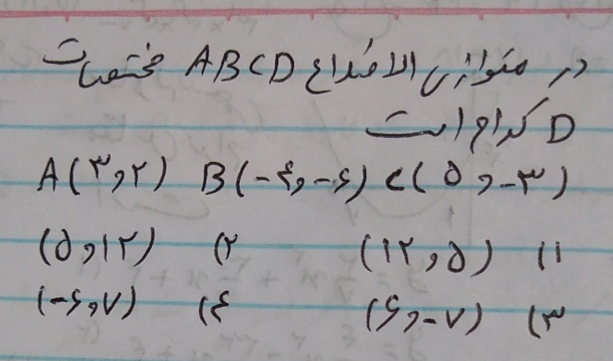 در متوازی الاضلاع ABCD مختصات
D کدام است
A(۳,۲) B(-۴,-۶) C(۵,-۳)
۱) (۱۲,۵) ۲) (۵,۱۲)
۳) (۶,-۷) ۴) (-۶,۷)